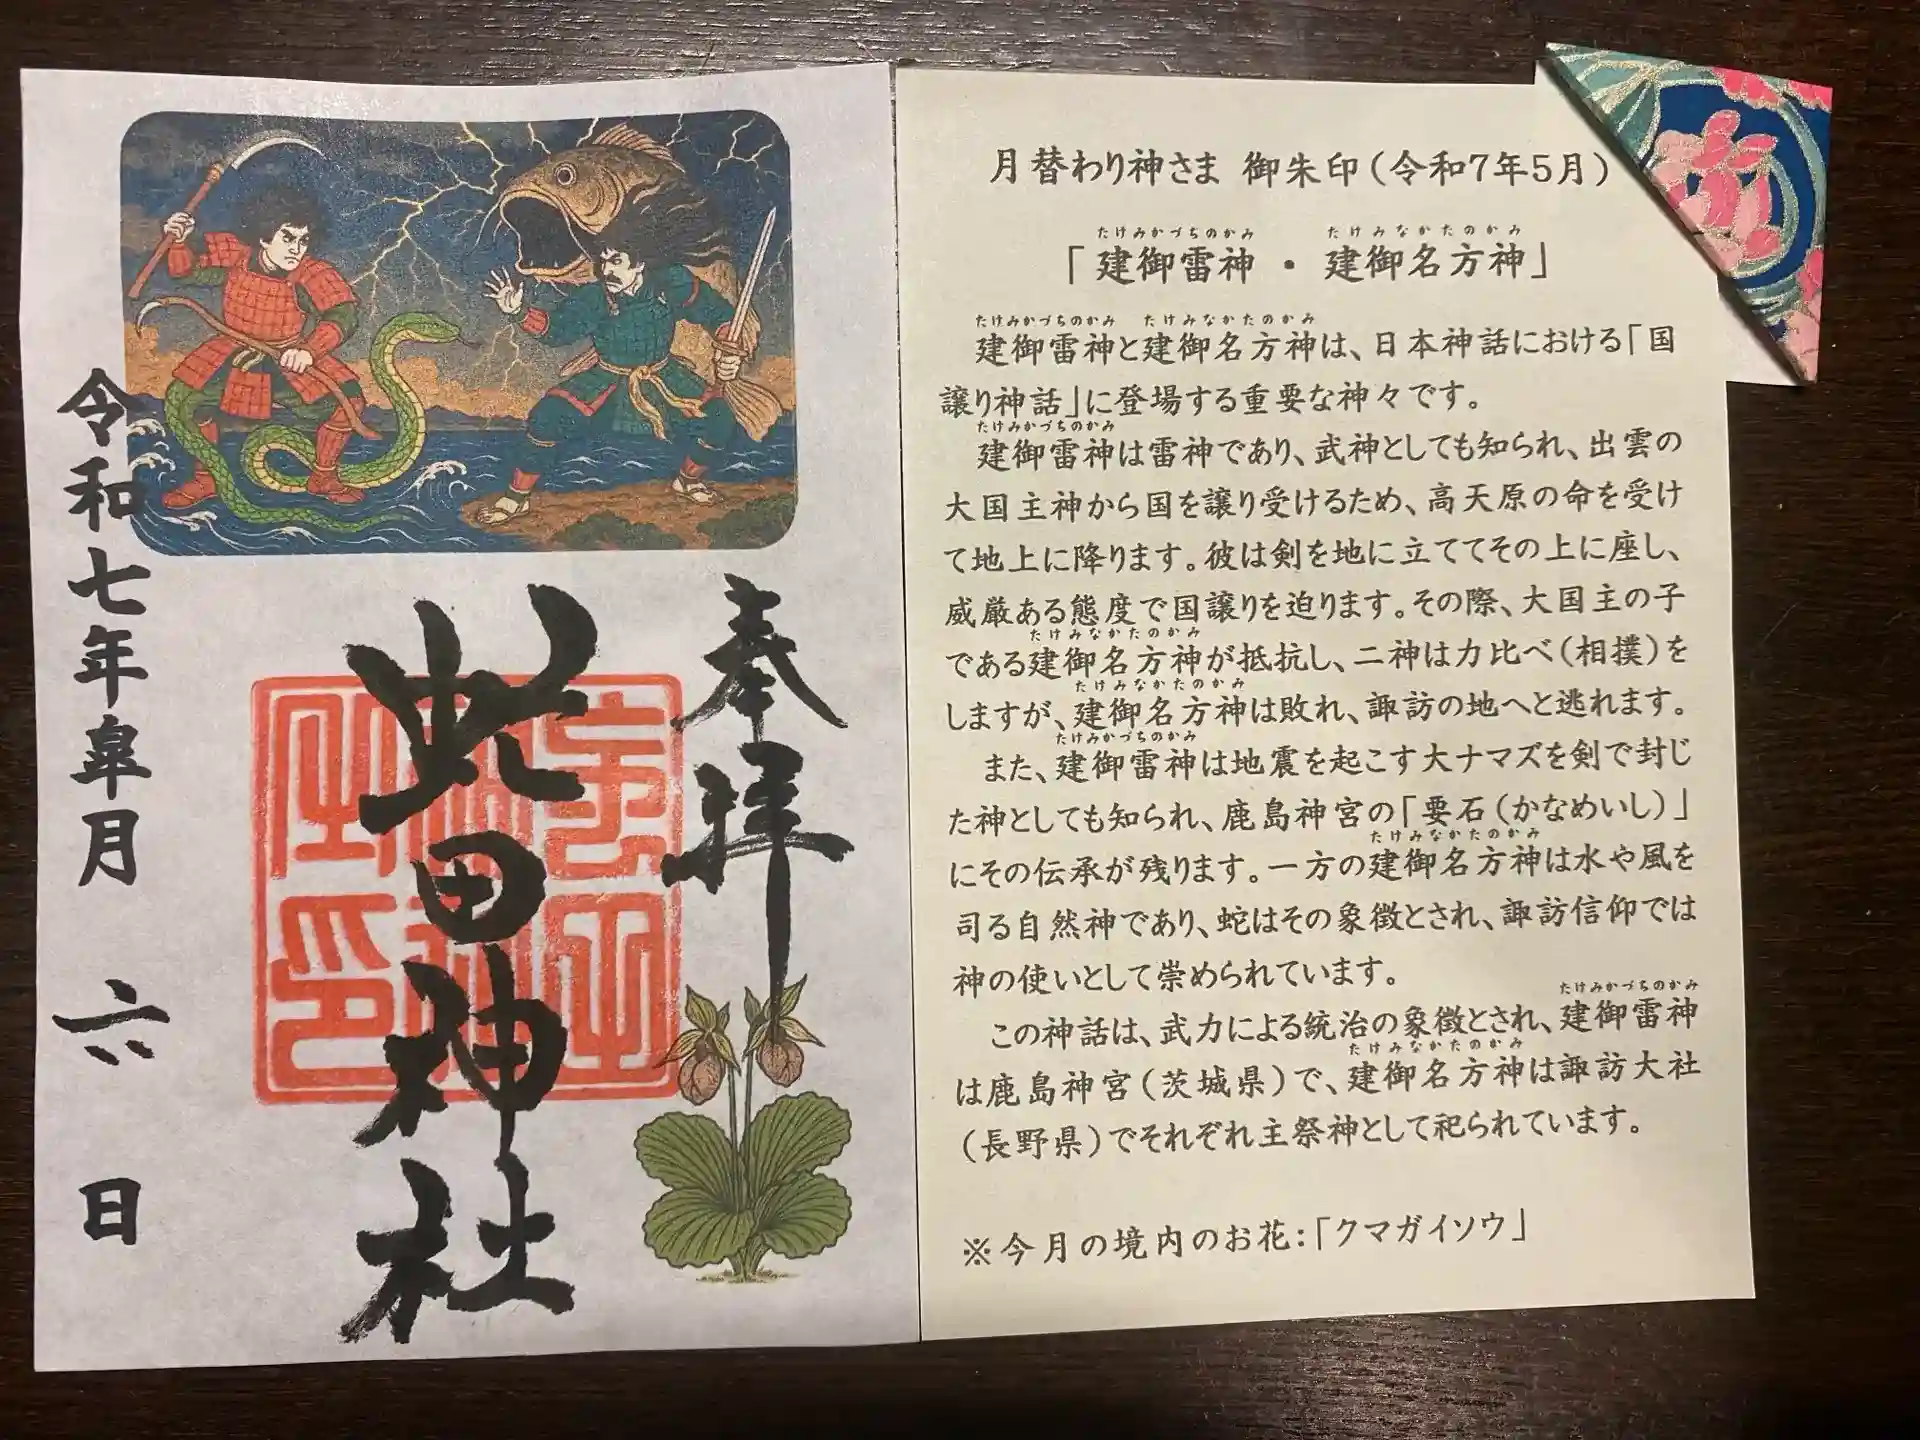 奉拝
田神社
令和七年皐月 六 日
月替わり神さま 御朱印(令和7年5月)
たけみかづちのかみ たけみなかたのかみ
「建御雷神・建御名方神」
たけみかづちのかみ たけみなかたのかみ
建御雷神と建御名方神は、日本神話における「国
譲り神話」に登場する重要な神々です。
たけみかづちのかみ
建御雷神は雷神であり、武神としても知られ、出雲の
大国主神から国を譲り受けるため、高天原の命を受け
て地上に降ります。彼は剣を地に立ててその上に座し、
威厳ある態度で国譲りを迫ります。その際、大国主の子
たけみなかたのかみ
である建御名方神が抵抗し、二神は力比べ(相撲)を
たけみなかたのかみ
しますが、建御名方神は敗れ、諏訪の地へと逃れます。
たけみかづちのかみ
また、建御雷神は地震を起こす大ナマズを剣で封じ
た神としても知られ、鹿島神宮の「要石(かなめいし)」
たけみなかたのかみ
にその伝承が残ります。一方の建御名方神は水や風を
司る自然神であり、蛇はその象徴とされ、諏訪信仰では
神の使いとして崇められています。
たけみかづちのかみ
この神話は、武力による統治の象徴とされ、建御雷神
たけみなかたのかみ
は鹿島神宮(茨城県)で、建御名方神は諏訪大社
(長野県)でそれぞれ主祭神として祀られています。
※今月の境内のお花:「クマガイソウ」